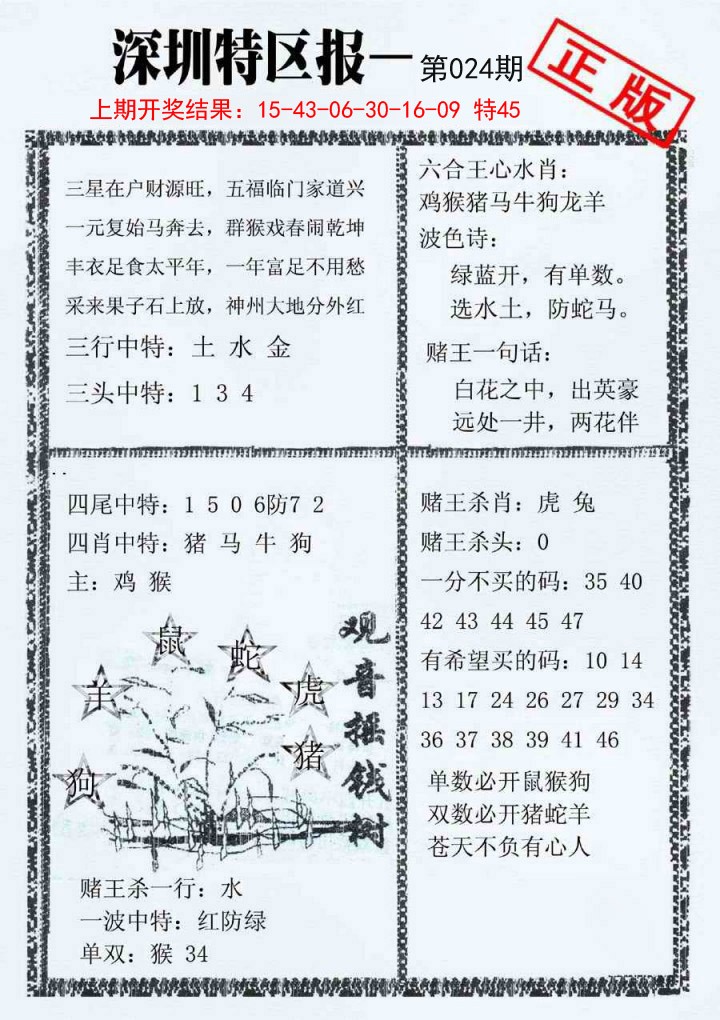 深圳特区报—第024期
正版
上期开奖结果：15-43-06-30-16-09 特45
三星在户财源旺，五福临门家道兴
一元复始马奔去，群猴戏春闹乾坤
丰衣足食太平年，一年富足不用愁
采来果子石上放，神州大地分外红
三行中特：土 水 金
三头中特：1 3 4
六合王心水肖：
鸡猴猪马牛狗龙羊
波色诗：
绿蓝开，有单数。
选水土，防蛇马。
赌王一句话：
白花之中，出英豪
远处一井，两花伴
四尾中特：1 5 0 6防7 2
四肖中特：猪 马 牛 狗
主：鸡 猴
鼠
蛇
羊
虎
猪
狗
观音摇钱树
赌王杀一行：水
一波中特：红防绿
单双：猴 34
赌王杀肖：虎 兔
赌王杀头：0
一分不买的码：35 40
42 43 44 45 47
有希望买的码：10 14
13 17 24 26 27 29 34
36 37 38 39 41 46
单数必开鼠猴狗
双数必开猪蛇羊
苍天不负有心人